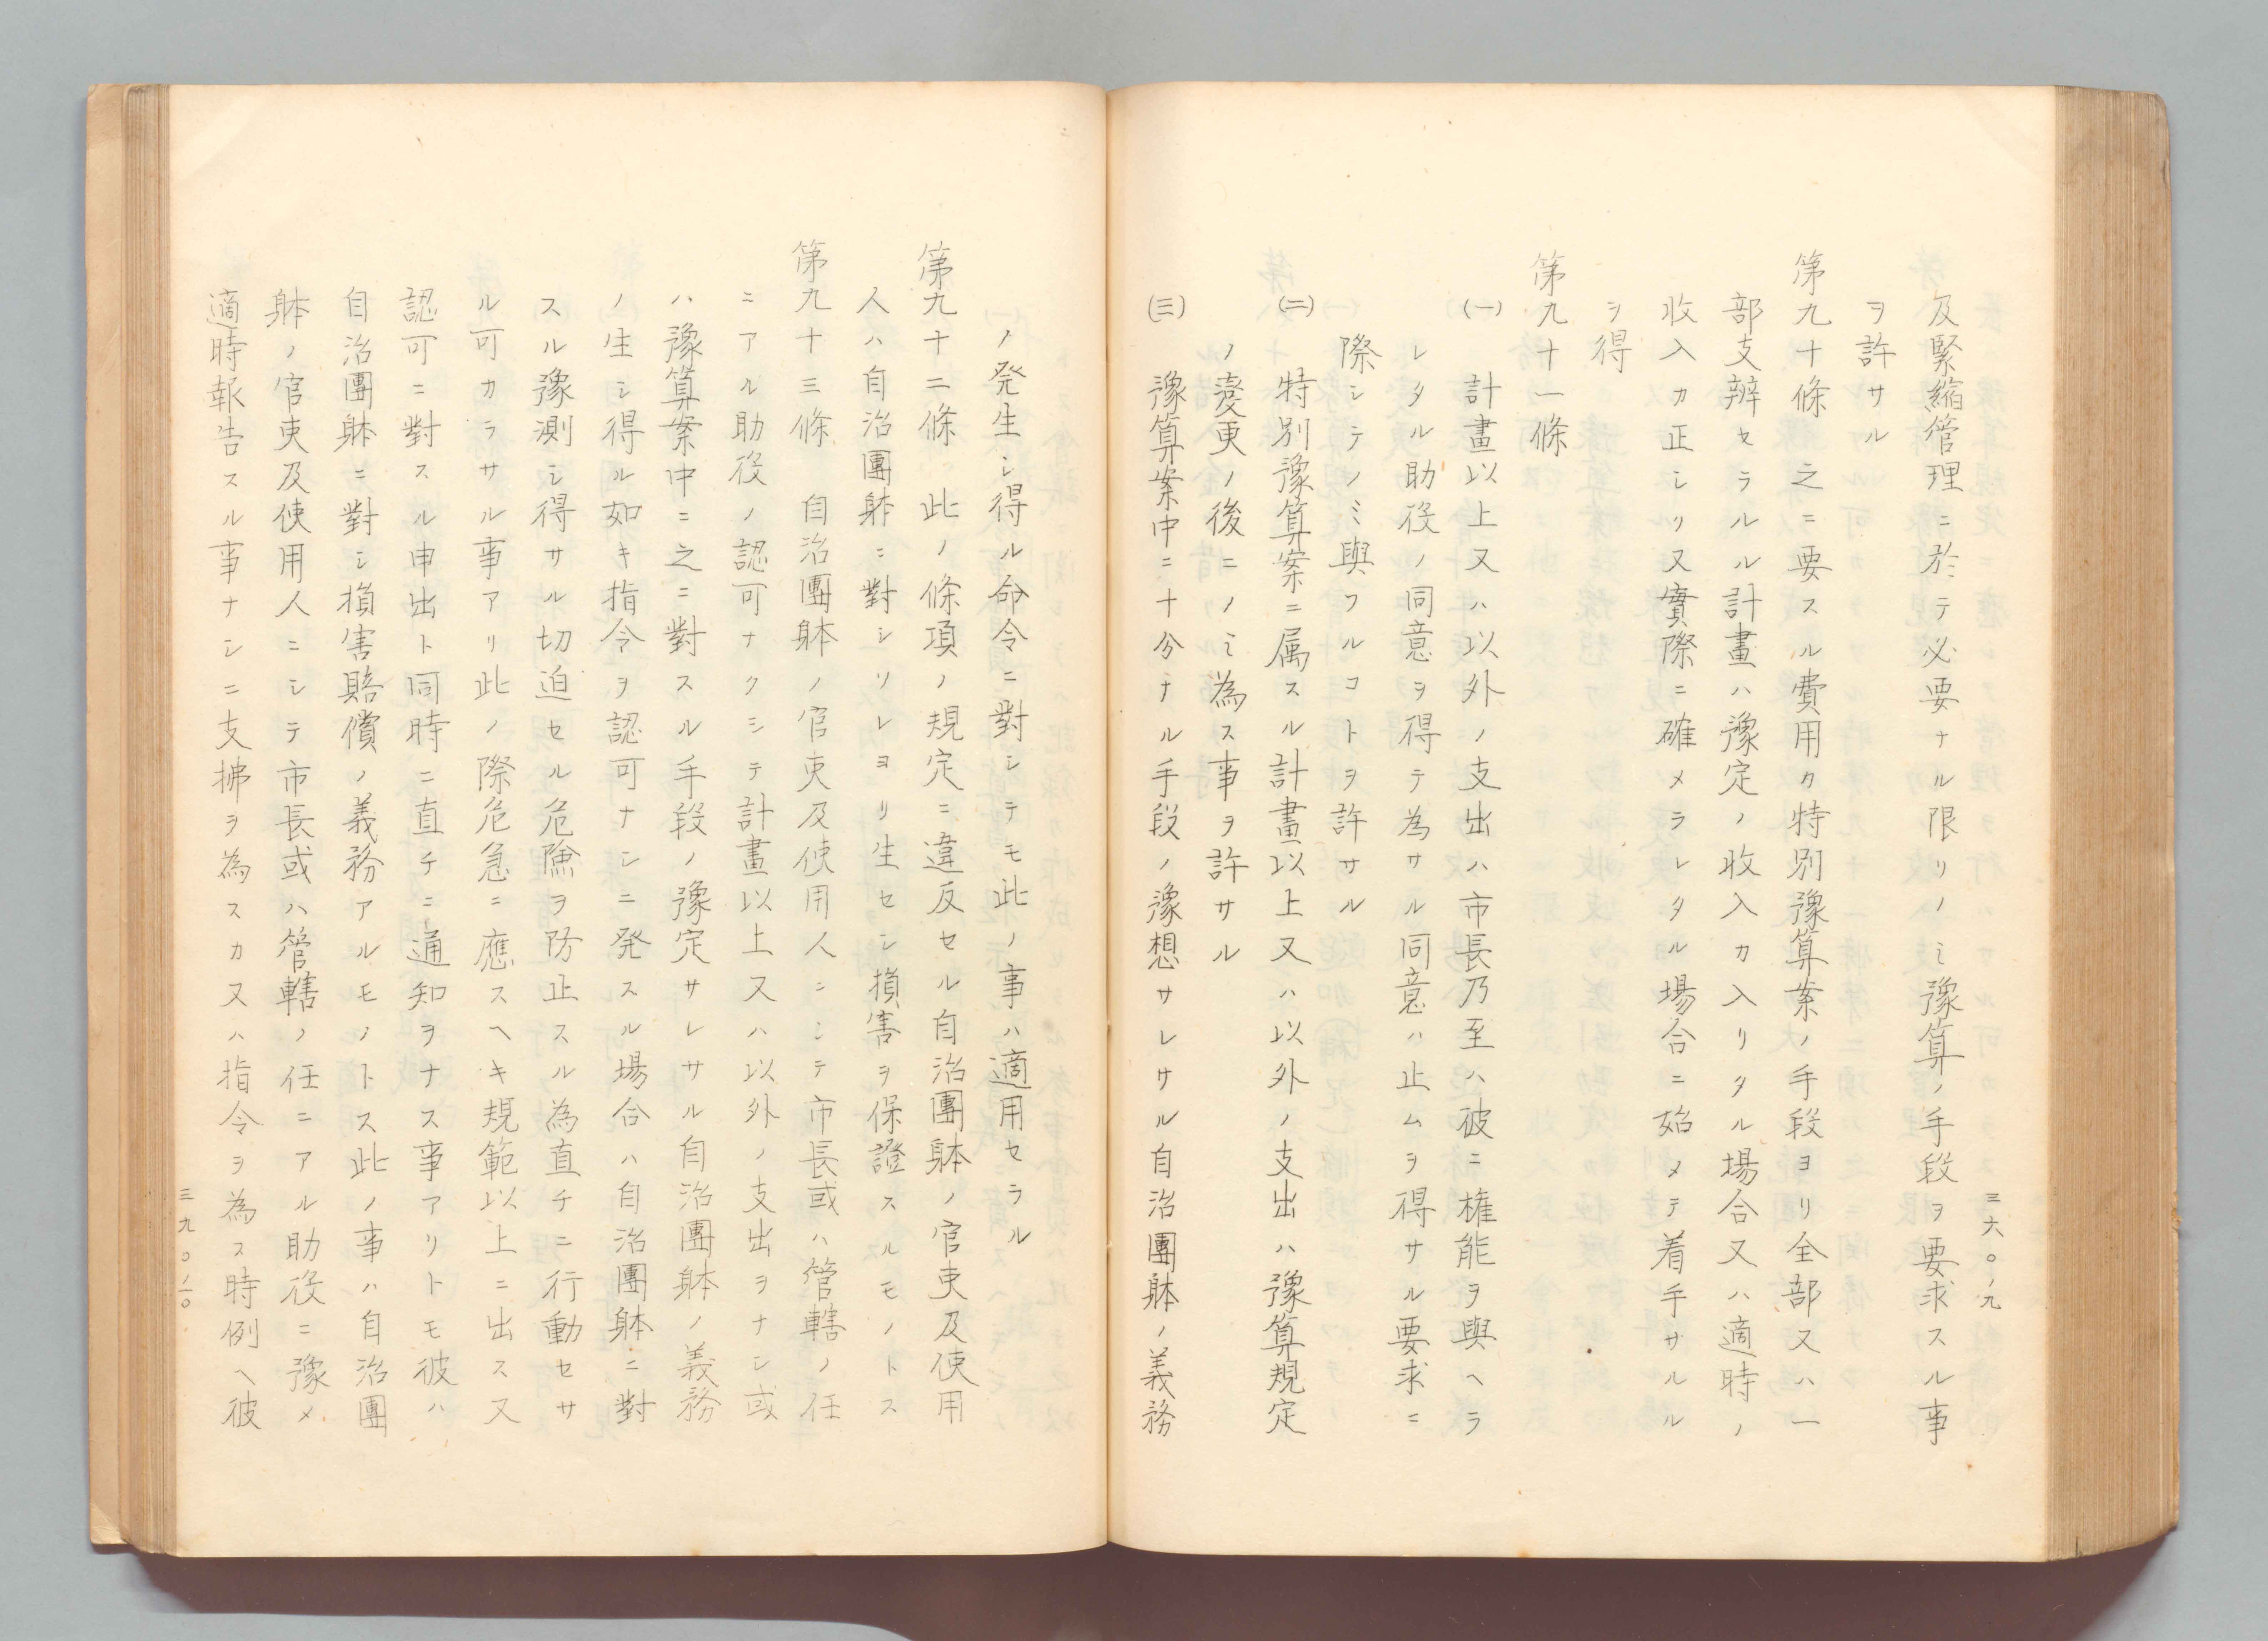 三六〇ノ九
及緊縮管理ニ於テ必要ナル限リノミ豫算ノ手段ヲ要求スル事
ヲ許サル
第九十條　之ニ要スル費用カ特別豫算案ノ手段ヨリ全部又ハ一
部支辨セラルル計畫ハ豫定ノ收入カ入リタル場合又ハ適時ノ
收入カ正シリ又實際ニ確メラレタル場合ニ始メテ着手サルル
ヲ得
第九十一條
(一)　計畫以上又ハ以外ノ支出ハ市長乃至ハ彼ニ権能ヲ與ヘラ
レタル助役ノ同意ヲ得テ為サル同意ハ止ムヲ得サル要求ニ
際シテノミ與フルコトヲ許サル
(二)　特別豫算案ニ属スル計畫以上又ハ以外ノ支出ハ豫算規定
ノ変更ノ後ニノミ為ス事ヲ許サル
(三)　豫算案中ニ十分ナル手段ノ豫想サレサル自治團躰ノ義務
ノ発生シ得ル命令ニ對シテモ此ノ事ハ適用セラル
第九十二條　此ノ條項ノ規定ニ違反セル自治團躰ノ官吏及使用
人ハ自治團躰ニ對シソレヨリ生セシ損害ヲ保證スルモノトス
第九十三條　自治團躰ノ官吏及使用人ニシテ市長或ハ管轄ノ任
ニアル助役ノ認可ナクシテ計畫以上又ハ以外ノ支出ヲナシ或
ハ豫算案中ニ之ニ對スル手段ノ豫定サレサル自治團躰ノ義務
ノ生シ得ル如キ指令ヲ認可ナシニ発スル場合ハ自治團躰ニ對
スル豫測シ得サル切迫セル危険ヲ防止スル為直チニ行動セサ
ル可カラサル事アリ此ノ際危急ニ應スヘキ規範以上ニ出ス又
認可ニ對スル申出ト同時ニ直チニ通知ヲナス事アリトモ彼ハ
自治團躰ニ對シ損害賠償ノ義務アルモノトス此ノ事ハ自治團
躰ノ官吏及使用人ニシテ市長或ハ管轄ノ任ニアル助役ニ豫メ
適時報告スル事ナシニ支拂ヲ為スカ又ハ指令ヲ為ス時例ヘ彼
三九〇ノ一〇